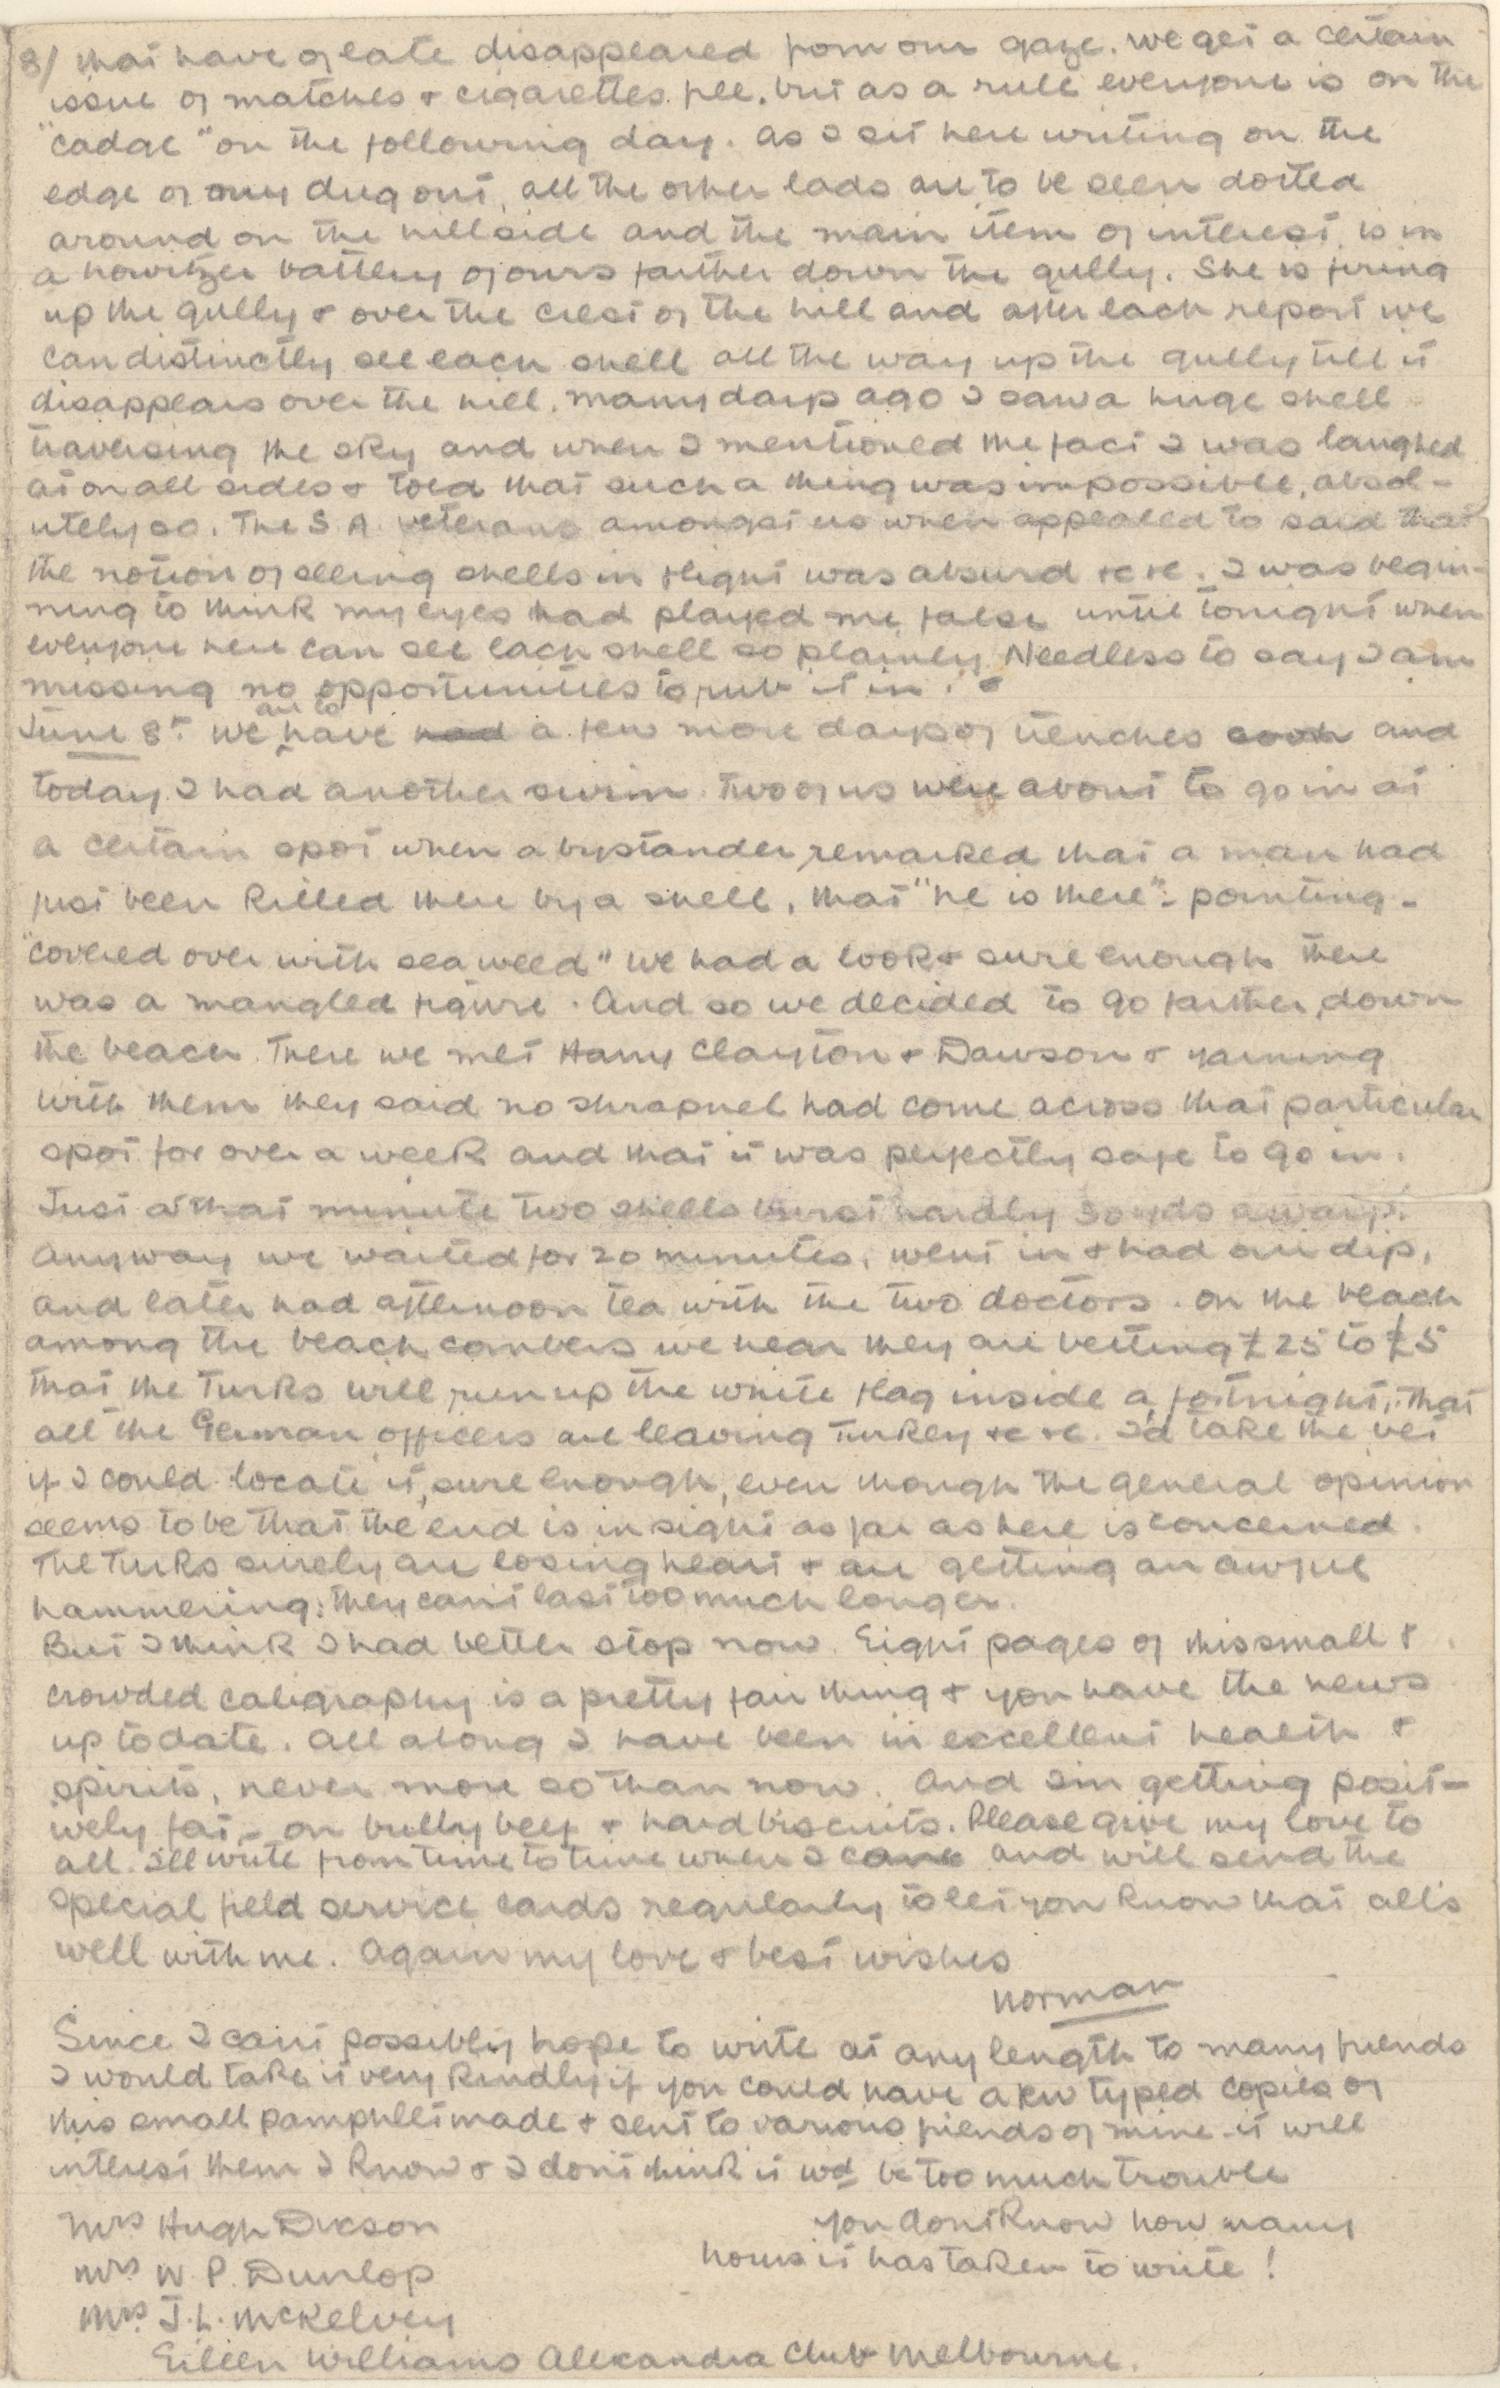 8/ that have of late disappeared from our gaze. We get a certain
issue of matches & cigarettes free, but as a rule everyone is on the
"cadge" on the following day. As I sit here writing on the
edge of my dug out, all the other lads are to be seen dotted
around on the hillside and the main item of interest is in
a howitzer battery of ours farther down the gully. She is firing
up the gully & over the crest of the hill and after each report we
can distinctly see each shell all the way up the gully till it
disappears over the hill. Many days ago I saw a huge shell
traversing the sky and when I mentioned the fact I was laughed
at on all sides & told that such a thing was impossible, absol-
utely so. The S.A. veterans amongst us when appealed to said that
the notion of seeing shells in flight was absurd &c &c. I was begin-
ning to think my eyes had played me false until tonight when
everyone here can see each shell so plainly. Needless to say I am
missing no opportunities to rub it in.
June 8th. We are to have had a few more days of trenches soon and
today I had another swim. Two of us were about to go in at
a certain spot when a bystander remarked that a man had
just been killed there by a shell, that "he is there" - pointing -
"covered over with sea weed" We had a look & sure enough there
was a mangled figure. And so we decided to go farther down
the beach. There we met Harry Clayton & Dawson & yarning
with them they said no shrapnel had come across that particular
spot for over a week and that it was perfectly safe to go in.
Just at that minute two shells burst hardly 30 yds away!
Anyway we waited for 20 minutes, went in & had our dip,
and later had afternoon tea with the two doctors. On the beach
among the beach combers we hear they are betting £25 to £5
that the Turks will run up the white flag inside a fortnight, that
all the German officers are leaving Turkey &c &c. I'd take the bet
if I could locate it, sure enough, even though the general opinion
seems to be that the end is in sight as far as here is concerned.
The Turks surely are losing heart & are getting an awful
hammering; they can't last too much longer.
But I think I had better stop now. Eight pages of this small &
crowded caligraphy is a pretty fair thing & you have the news
up to date. All along I have been in excellent health &
spirits, never more so than now. And I'm getting posit-
ively fat - on bully beef & hard biscuits. Please give my love to
all. I'll write from time to time when I can and will send the
special field service cards regularly to let you know that all's
well with me. Again my love & best wishes
Norman
Since I can't possibly hope to write at any length to many friends
I would take it very kindly if you could have a few typed copies of
this small pamphlet made & sent to various friends of mine - it will
interest them I know & I don't think it wd be too much trouble
you don't know how many
hours it has taken to write!
Mrs Hugh Dixson
Mrs W. P. Dunlop
Mrs. J. L. McKelvey
Eileen Williams Alexandra Club Melbourne.